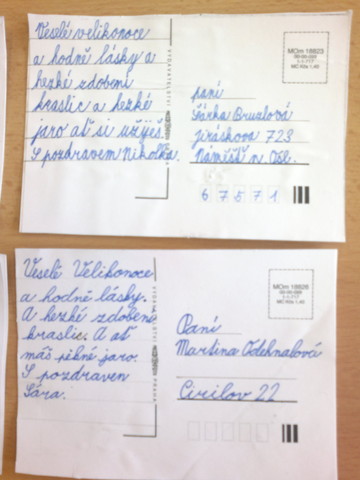 Veselé velikonoce
a hodně lásky a
hezké zdobení
kraslic a hezké
jaro ať si užiješ.
S pozdravem Nikolka.
VYDAVATELSTVÍ
MOm 18823
MC Kčs 1,40
paní
Šárka Bruzlová
Jiráskova 723
Náměšť n. Osl.
6 7 5 7 1
Veselé Velikonoce
a hodně lásky.
A hezké zdobené
kraslic. A ať
máš pěkné jaro.
S pozdraven
Sára.
VYDAVATELSTVÍ PRAHA
MOm 18826
MC Kčs 1,40
Paní
Martina Odehnalová
Cirilov 22